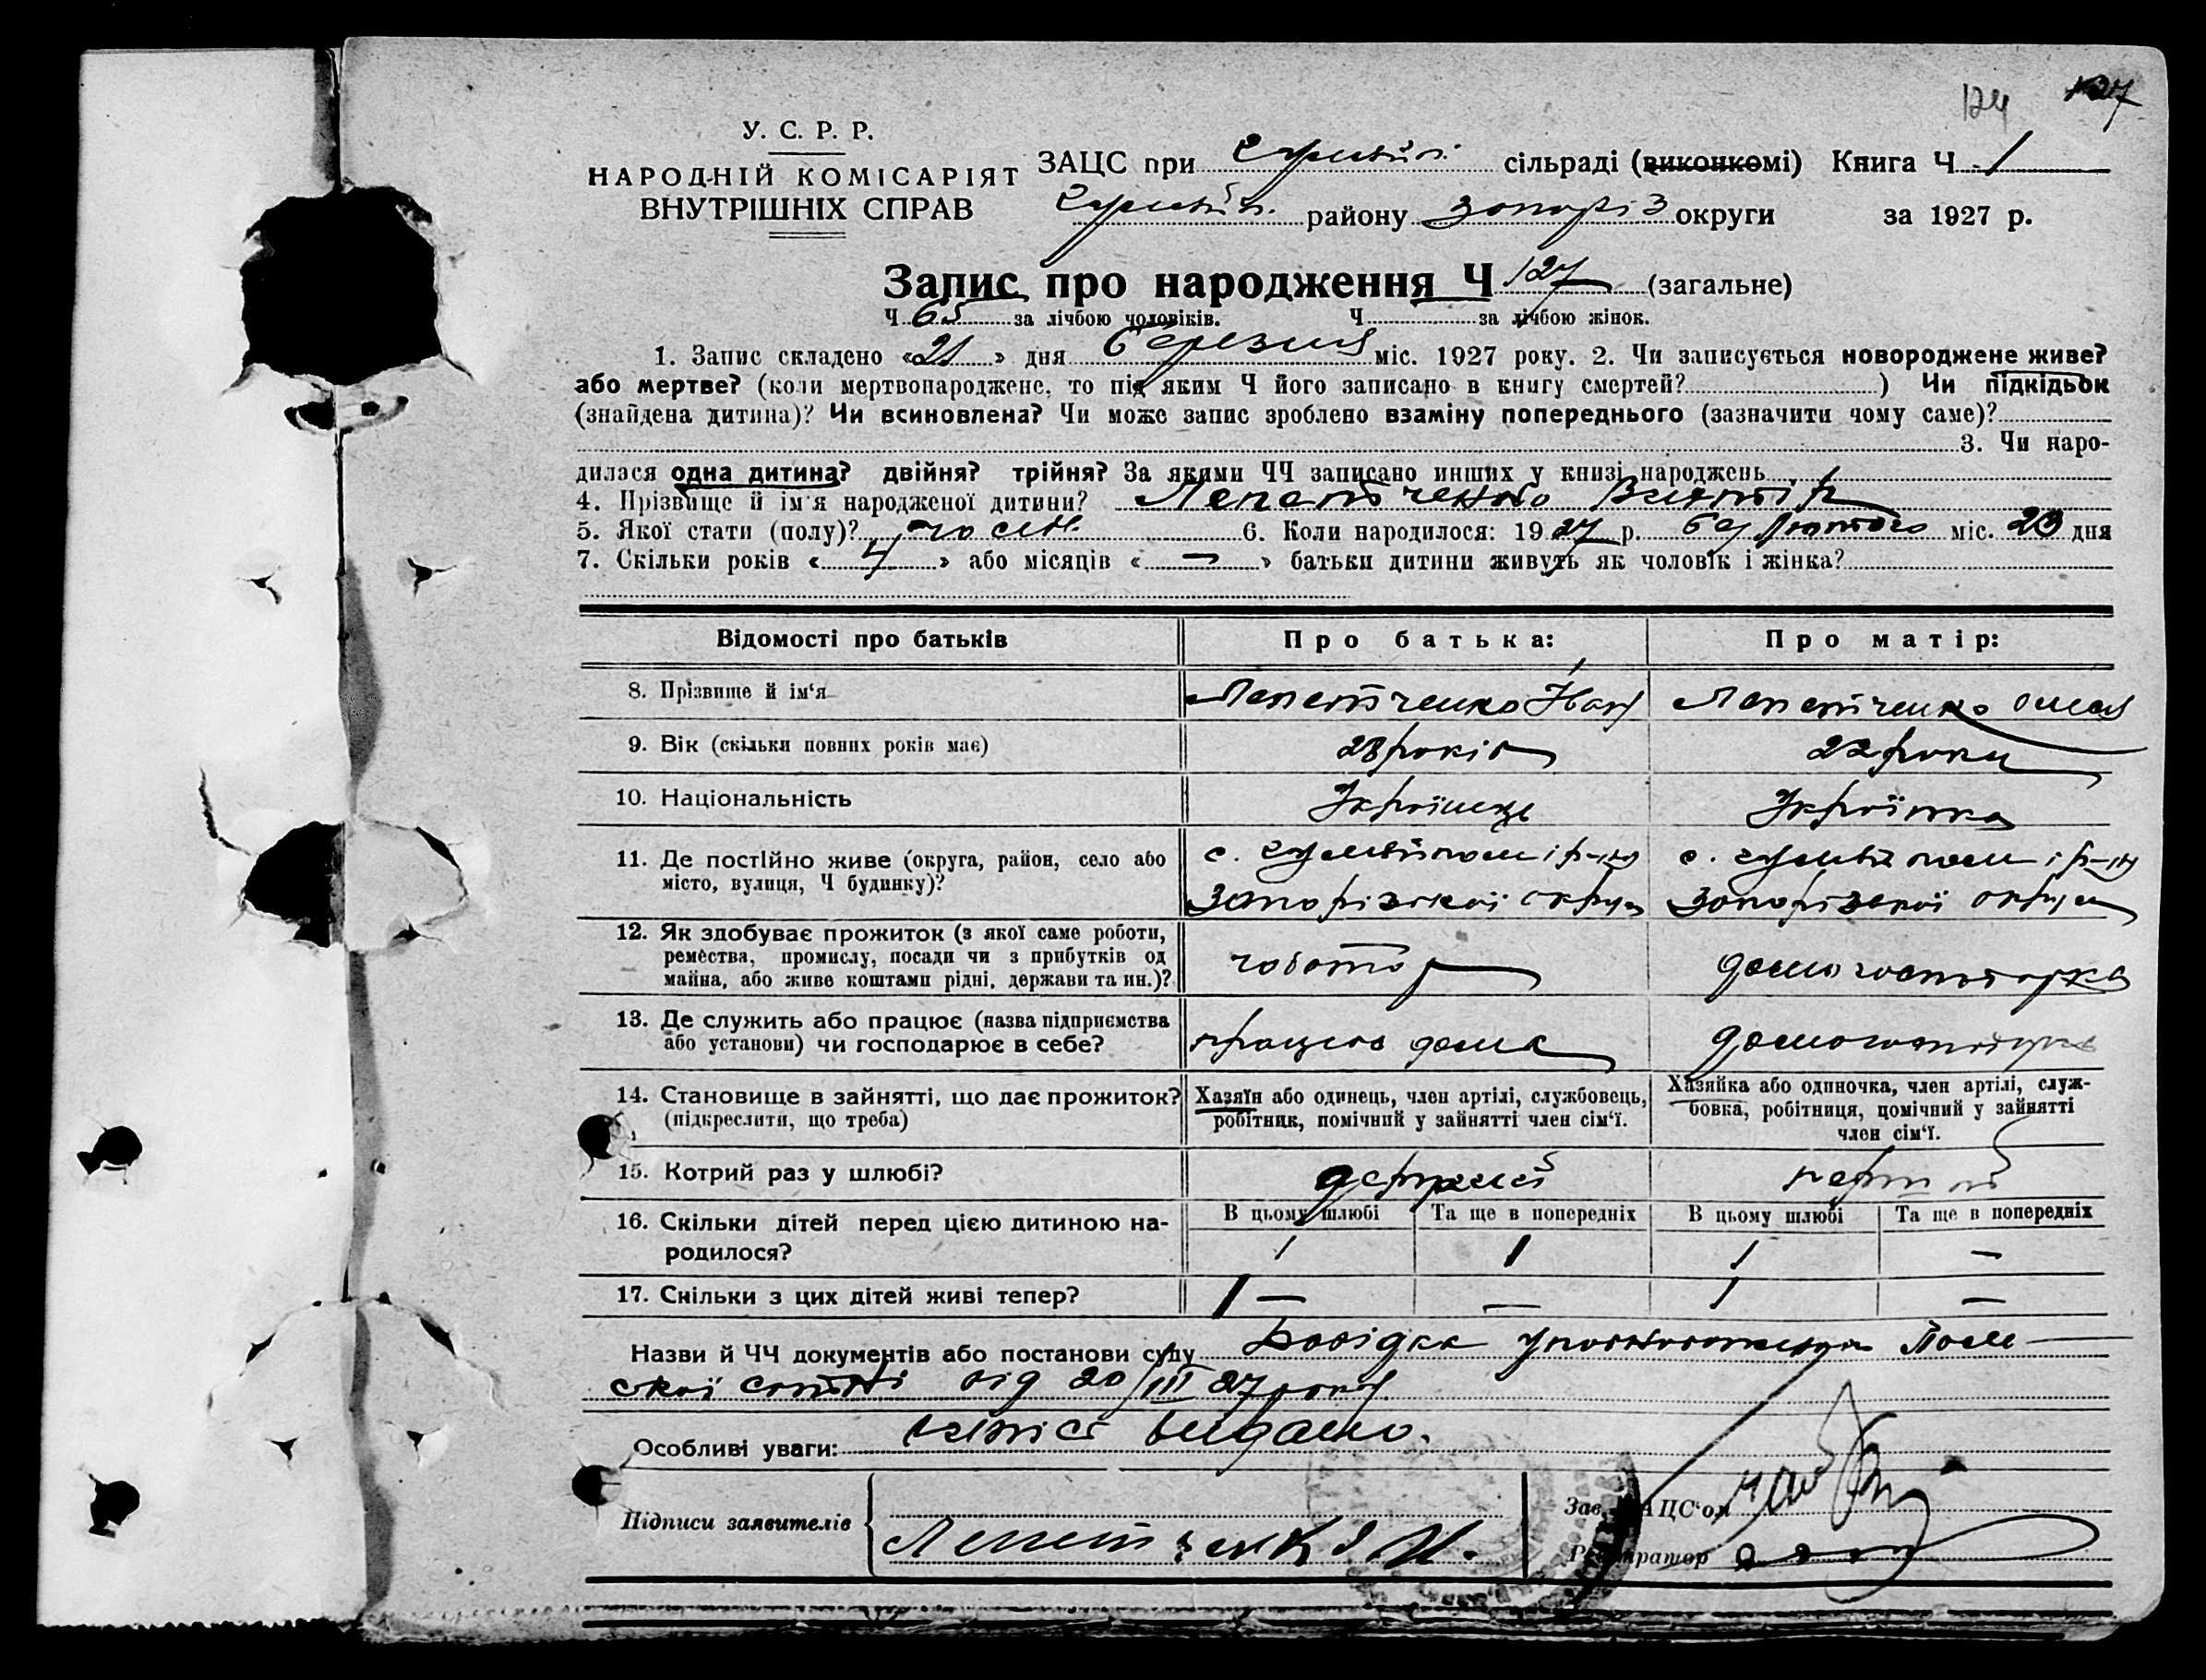 124 127
У. С. Р. Р.
НАРОДНІЙ КОМІСАРІЯТ
ВНУТРІШНІХ СПРАВ
ЗАЦС при Гуляйп. сільраді (виконкомі) Книга Ч. 1
Гуляйп. району Запоріз округи за 1927 р.
Запис про народження Ч 127 (загальне)
Ч 65 за лічбою чоловіків. Ч за лічбою жінок.
1. Запис складено «21» дня березня міс. 1927 року. 2. Чи записується новороджене живе?
або мертве? (коли мертвонароджене, то під яким Ч його записано в книгу смертей? ) Чи підкідьок
(знайдена дитина)? Чи всиновлена? Чи може запис зроблено взаміну попереднього (зазначити чому саме)?
3. Чи наро-
дилася одна дитина? двійня? трійня? За якими ЧЧ записано инших у книзі народжень
4. Прізвище й ім'я народженої дитини? Лепетченко
5. Якої стати (полу)? чолов. 6. Коли народилося: 1927 р. Лютого міс. 23 дня
7. Скільки років « 4 » або місяців « — » батьки дитини живуть як чоловік і жінка?
Відомості про батьків Про батька: Про матір:
8. Прізвище й ім'я Лепетченко Іван Лепетченко
9. Вік (скільки повних років має) 28 років 22 роки
10. Національність Українець Українка
11. Де постійно живе (округа, район, село або місто, вулиця, Ч будинку)?
с. Гуляйполе і р-ну с. Гуляйполе і р-ну
Запорізької округи Запорізької округи
12. Як здобуває прожиток (з якої саме роботи,
ремества, промислу, посади чи з прибутків од
майна, або живе коштами рідні, держави та ин.)?
чоботар домогосподарка
13. Де служить або працює (назва підприємства
або установи) чи господарює в себе?
працює дома домогосподарка
14. Становище в зайнятті, що дає прожиток?
(підкреслити, що треба)
Хазяїн або одинець, член артілі, службовець,
робітник, помічний у зайнятті член сім'ї.
Хазяйка або одиночка, член артілі, служ-
бовка, робітниця, помічний у зайнятті
член сім'ї.
15. Котрий раз у шлюбі? другий перший
16. Скільки дітей перед цією дитиною на-
родилося?
В цьому шлюбі Та ще в попередніх В цьому шлюбі Та ще в попередніх
1 1 1 —
17. Скільки з цих дітей живі тепер? 1 — — 1 —
Назви й ЧЧ документів або постанови суду Довідка уповноваженого
ської сотні від 20/III 27 року
Особливі уваги: видано.
Підписи заявителів Лепетченко И.
Зав. ЗАЦС'ом
Реєстратор